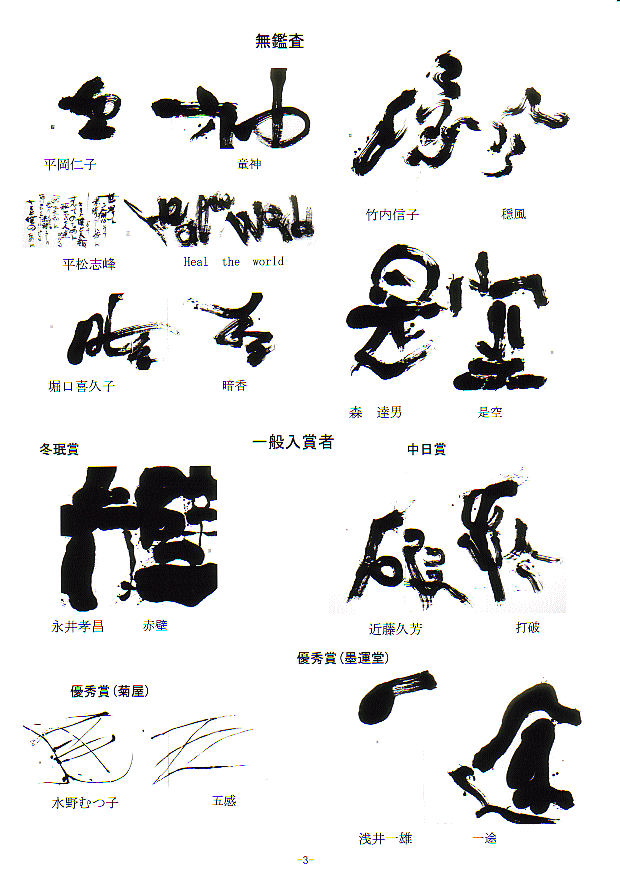 無鑑査
平岡仁子 童神
竹内信子 穏風
平松志峰 Heal the world
堀口喜久子 暗香
森 達男 是空
一般入賞者
冬珉賞
中日賞
永井孝昌 赤壁
近藤久芳 打破
優秀賞(墨運堂)
優秀賞(菊屋)
水野むつ子 五感
浅井一雄 一途
-3-